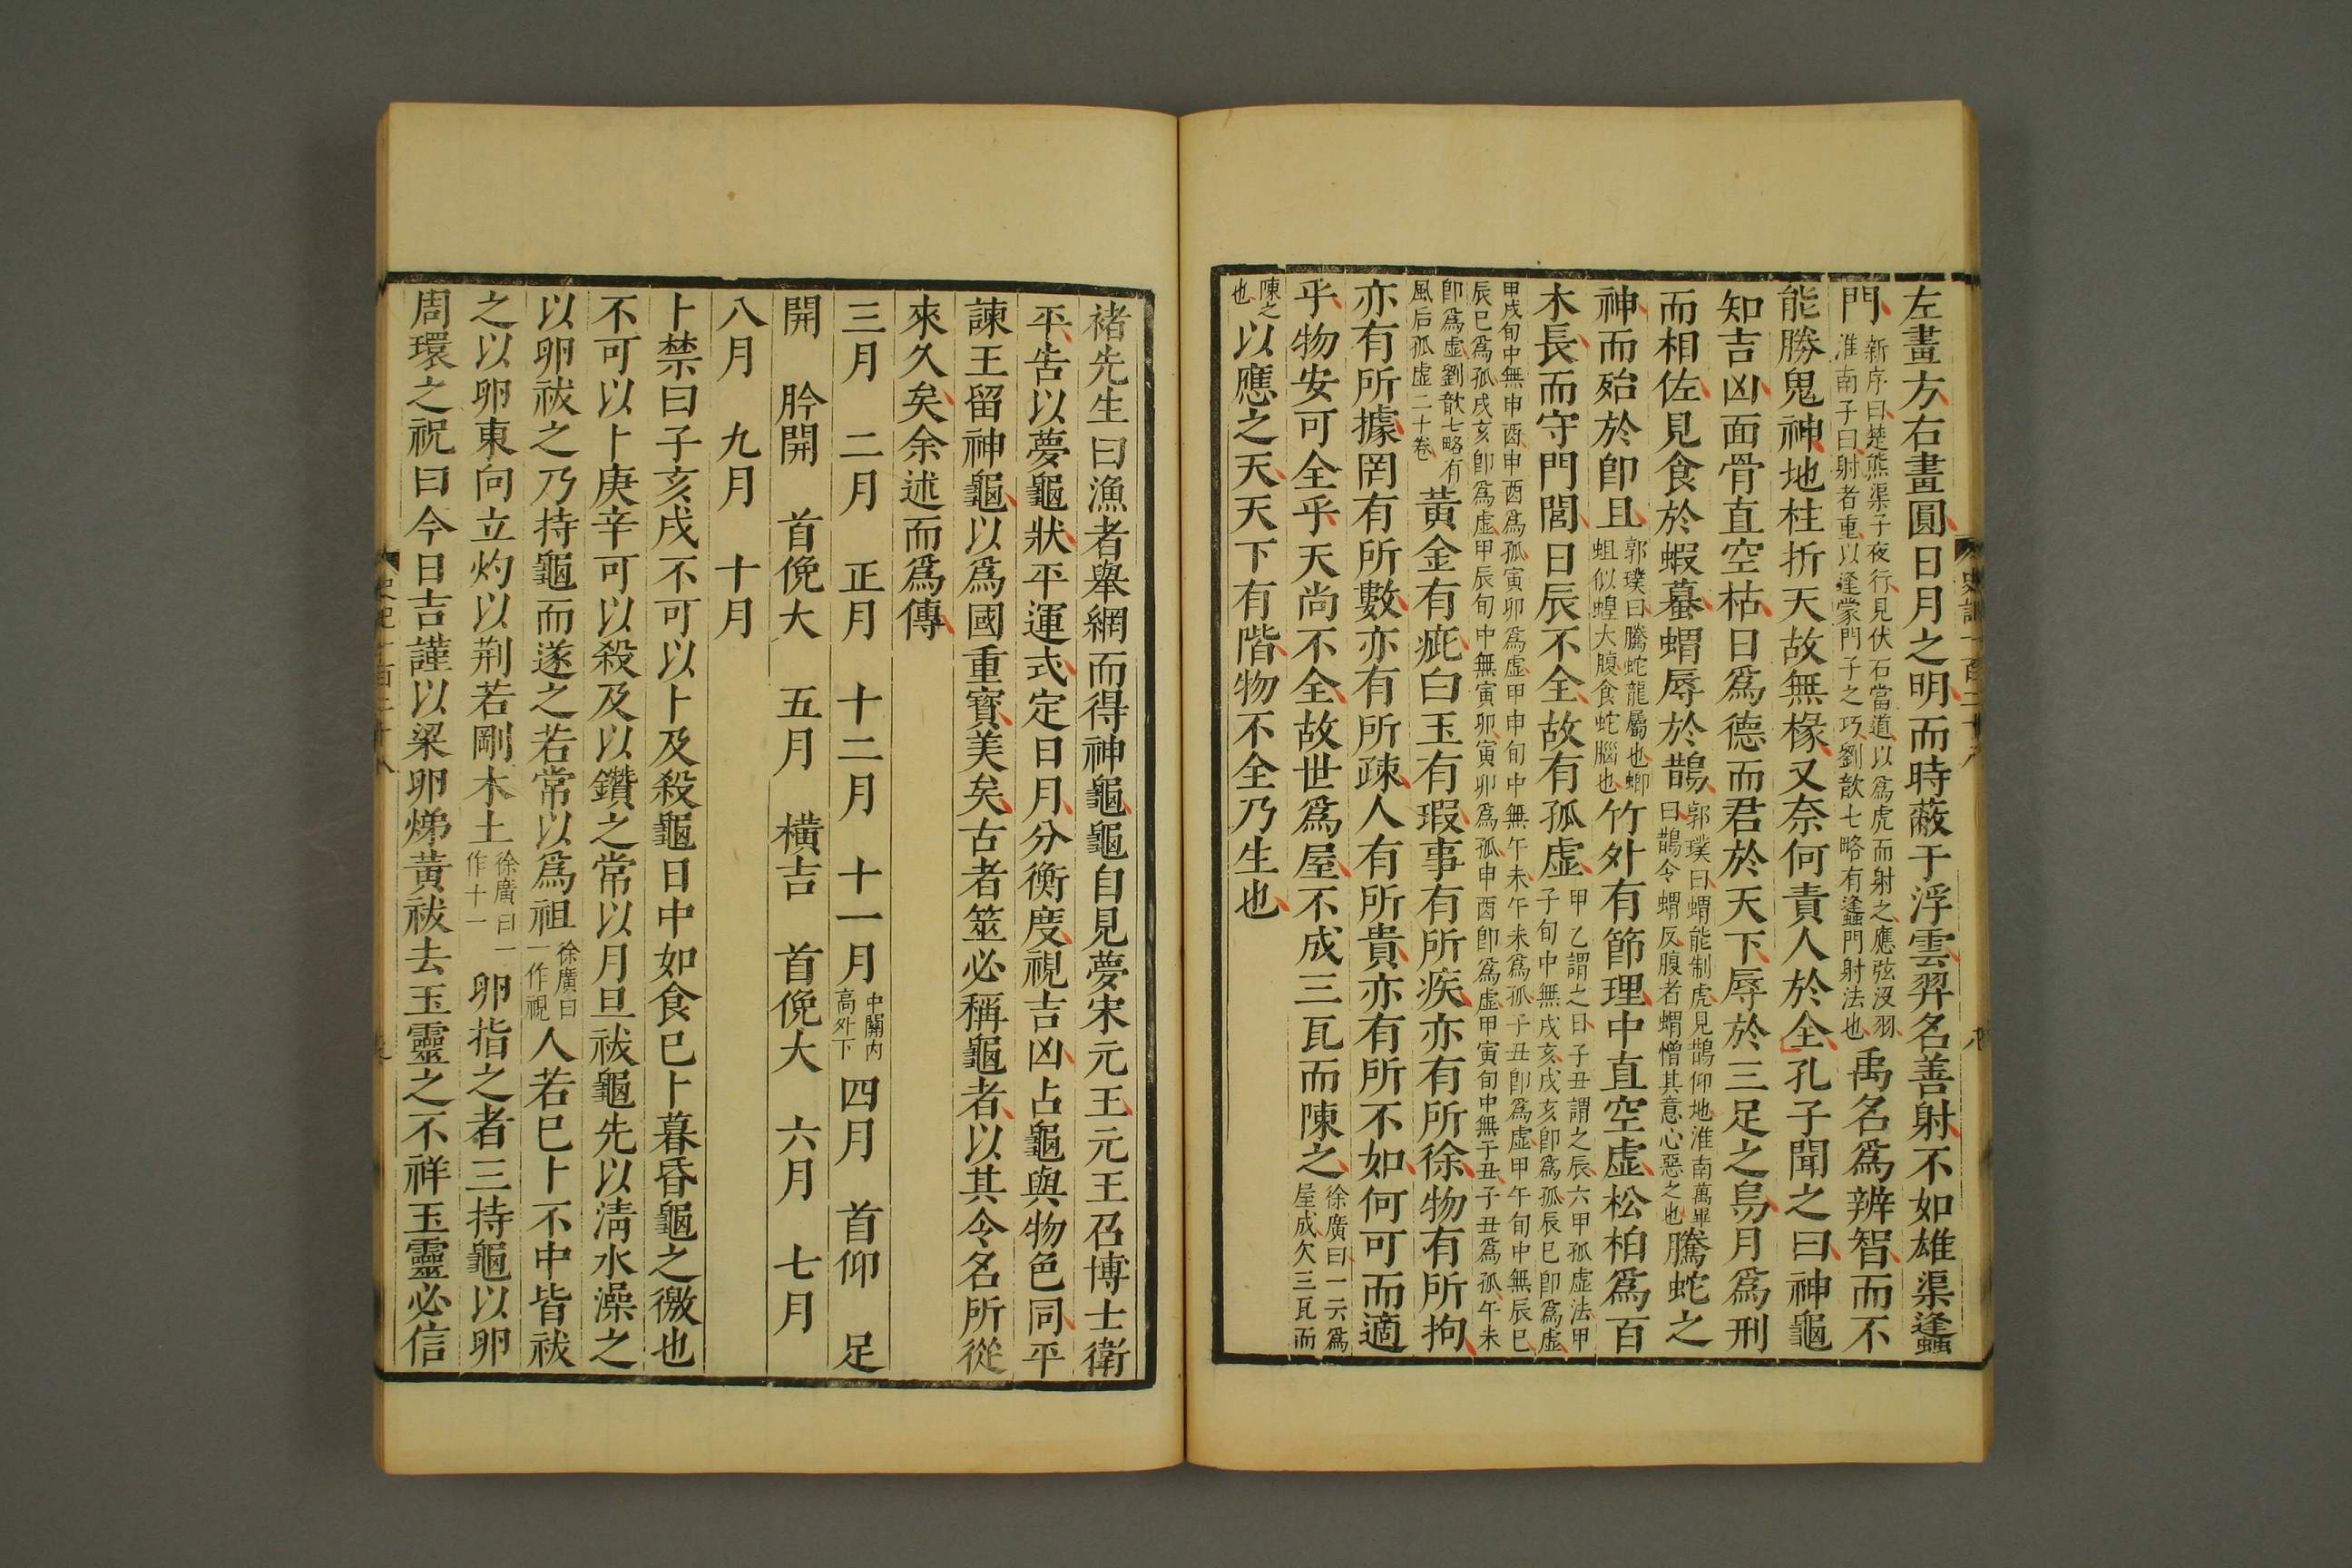 左畫方右畫圓日月之明而時蔽于浮雲羿名善射不如雄渠逢蠭
門新序曰楚熊渠子夜行見伏石當道以爲虎而射之應弦沒羽淮南子曰射者重以逢蒙門子之巧劉歆七略有逢蠭門射法也禹名爲辨智而不
能勝鬼神地柱折天故無椽又奈何責人於全孔子聞之曰神龜
知吉凶面骨直空枯日爲德而君於天下辱於三足之烏月爲刑
而相佐見食於蝦蟇蝟辱於鵲郭璞曰蝟能制虎見鵲仰地淮南萬畢曰鵲令蝟反腹者蝟憎其意心惡之也騰蛇之
神而殆於卽且郭璞曰騰蛇龍屬也蝍蛆似蝗大腹食蛇腦也竹外有節理中直空虛松柏爲百
木長而守門閭日辰不全故有孤虛甲乙謂之日子丑謂之辰六甲孤虛法甲子旬中無戌亥戌亥卽爲孤辰巳卽爲虛
甲戌旬中無申酉申酉爲孤寅卯爲虛甲申旬中無午未午未爲孤子丑卽爲虛甲午旬中無辰巳辰巳爲孤戌亥卽爲虛甲辰旬中無寅卯寅卯爲孤申酉卽爲虛甲寅旬中無子丑子丑爲孤午未
卽爲虛劉歆七略有風后孤虛二十卷黃金有疵白玉有瑕事有所疾亦有所徐物有所拘
亦有所據罔有所數亦有所疎人有所貴亦有所不如何可而適
乎物安可全乎天尚不全故世爲屋不成三瓦而陳之徐廣曰一云爲屋成欠三瓦而
陳之也以應之天天下有階物不全乃生也
褚先生曰漁者舉網而得神龜龜自見夢宋元王元王召博士衛
平告以夢龜狀平運式定日月分衡度視吉凶占龜與物色同平
諫王留神龜以爲國重寶美矣古者筮必稱龜者以其令名所從
來久矣余述而爲傳
三月 二月 正月 十二月 十一月中關內高外下 四月 首仰 足
開 肣開 首俛大 五月 橫吉 首俛大 六月 七月
八月 九月 十月
卜禁曰子亥戌不可以卜及殺龜日中如食已卜暮昏龜之徼也
不可以卜庚辛可以殺及以鑽之常以月旦祓龜先以淸水澡之
以卵祓之乃持龜而遂之若常以爲祖徐廣曰一作視人若已卜不中皆祓
之以卵東向立灼以荆若剛木土徐廣曰一作十一卵指之者三持龜以卵
周環之祝曰今日吉謹以梁卵焍黃祓去玉靈之不祥玉靈必信